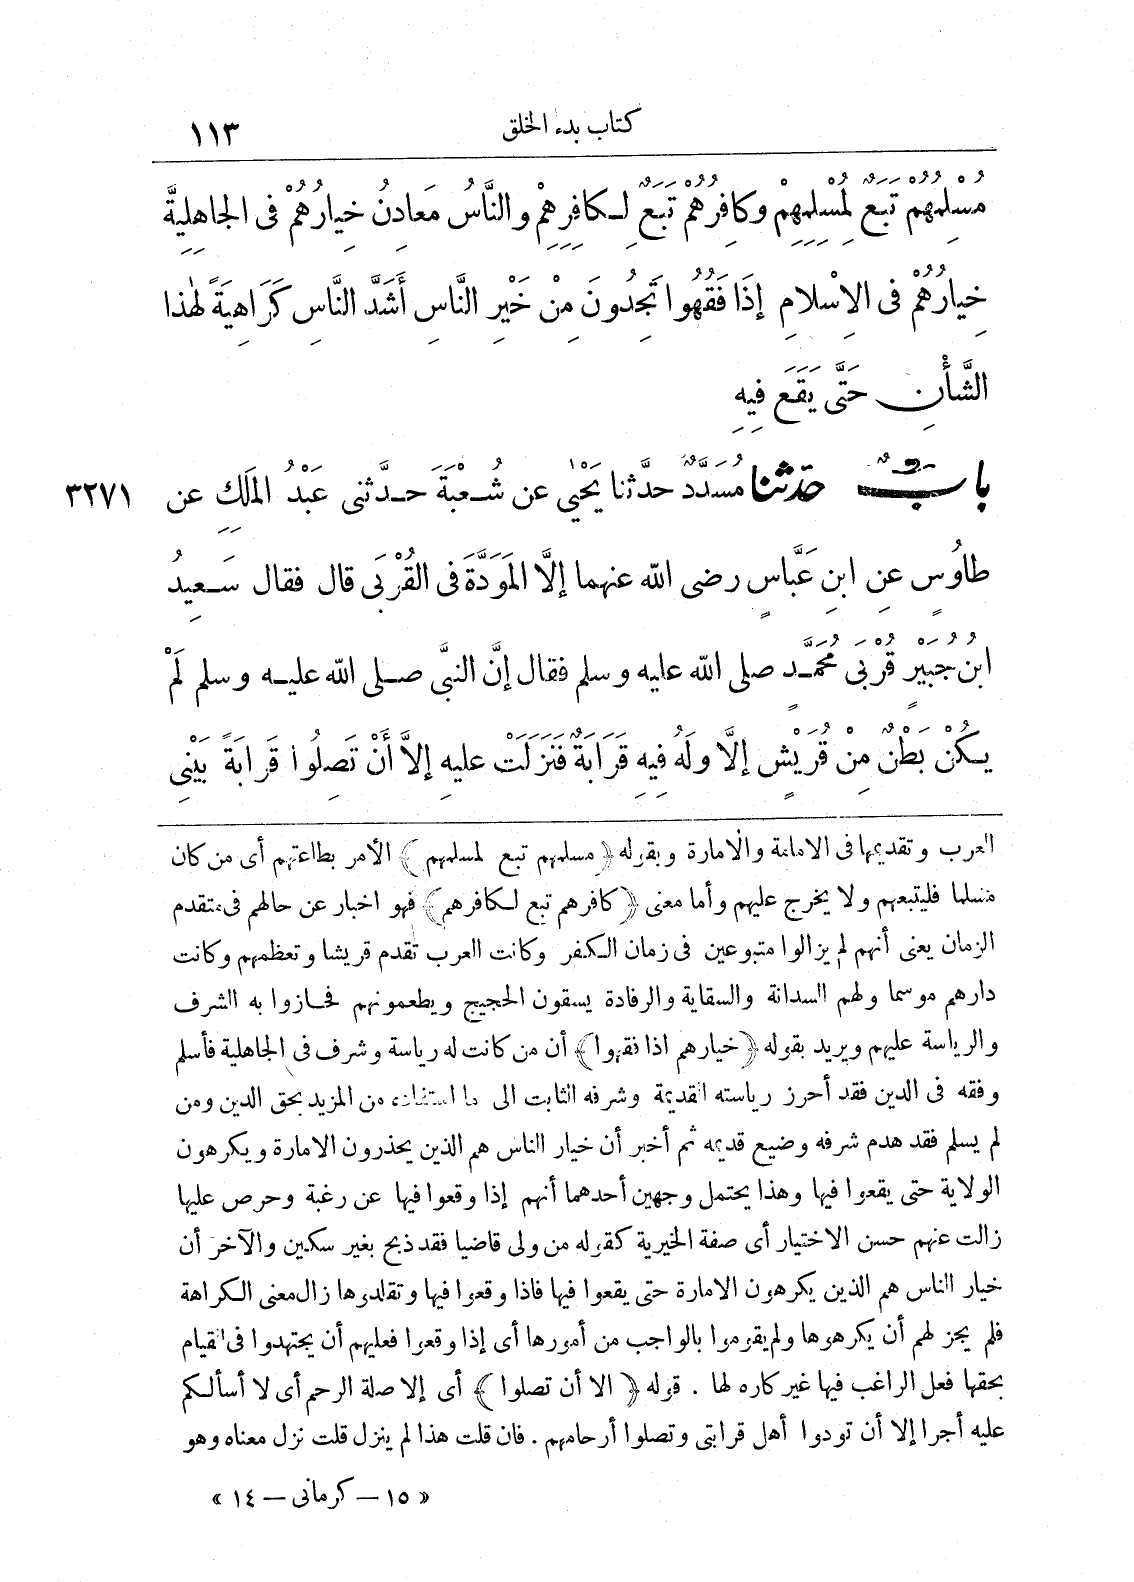 كتاب بدء الخلق
١١٣
مُسْلِمُهُمْ تَبَعٌ لِمُسْلِمِهِمْ وكافِرُهُمْ تَبَعٌ لِكافِرِهِمْ والنَّاسُ مَعادِنُ خِيارُهُمْ فى الجاهِلِيةَّ
خِيارُهُمْ فى الاِسْلامِ إذَا فَقُهُوا تَجِدُونَ مِنْ خَيْرِ النَّاسِ أَشَدَّ النَّاسِ كَرَاهِيَةً لهٰذا
الشَّأْنِ حَتَّى يَقَعَ فِيهِ
بابٌ حدثنا مُسَدَّدٌ حدَّثنا يَحْيٰى عن شُعْبَةَ حدَّثنى عَبْدُ المَلِكِ عن
٣٢٧١
طاوُسٍ عنِ ابنِ عَبَّاسٍ رضى الله عنهما إلَّا المَوَدَّةَ فى القُرْبَى قال فقال سَعِيدُ
ابنُ جُبَيْرٍ قُرْبَى مُحَمَّدٍ صلى الله عليه وسلم فقال إنَّ النبىَّ صلى الله عليه وسلم لَمْ
يكُنْ بَطْنٌ مِنْ قُرَيْشٍ إلَّا ولَهُ فِيهِ قَرَابَةٌ فَنَزَلَتْ عليهِ إلاَّ أَنْ تَصِلُوا قَرابَةً بَيْنِى
العرب وتقديمها فى الامامة والامارة وبقوله ﴿مسلمهم تبع لمسلمهم﴾ الأمر بطاعتهم أى من كان
مسلما فليتبعهم ولا يخرج عليهم وأما معنى ﴿كافرهم تبع لكافرهم﴾ فهو اخبار عن حالهم فى متقدم
الزمان يعنى أنهم لم يزالوا متبوعين فى زمان الكفر وكانت العرب تقدم قريشا وتعظمهم وكانت
دارهم موسما ولهم السدانة والسقاية والرفادة يسقون الحجيج ويطعمونهم فحازوا به الشرف
والرياسة عليهم ويريد بقوله ﴿خيارهم اذا فقهوا﴾ أن من كانت له رياسة وشرف فى الجاهلية فأسلم
وفقه فى الدين فقد أحرز رياسته القديمة وشرفه الثابت الى ما استفاده من المزيد بحق الدين ومن
لم يسلم فقد هدم شرفه وضيع قديمه ثم أخبر أن خيار الناس هم الذين يحذرون الامارة ويكرهون
الولاية حتى يقعوا فيها وهذا يحتمل وجهين أحدهما أنهم إذا وقعوا فيها عن رغبة وحرص عليها
زالت عنهم حسن الاختيار أى صفة الخيرية كقوله من ولى قاضيا فقد ذبح بغير سكين والآخر أن
خيار الناس هم الذين يكرهون الامارة حتى يقعوا فيها فاذا وقعوا فيها وتقلدوها زال معنى الكراهة
فلم يجز لهم أن يكرهوها ولم يقوموا بالواجب من أمورها أى إذا وقعوا فعليهم أن يجتهدوا فى القيام
بحقها فعل الراغب فيها غير كاره لها . قوله ﴿الا أن تصلوا﴾ أى إلا صلة الرحم أى لا أسألكم
عليه أجرا إلا أن تودوا أهل قرابتى وتصلوا أرحامهم . فان قلت هذا لم ينزل قلت نزل معناه وهو
« ١٥ – كرمانى – ١٤ »